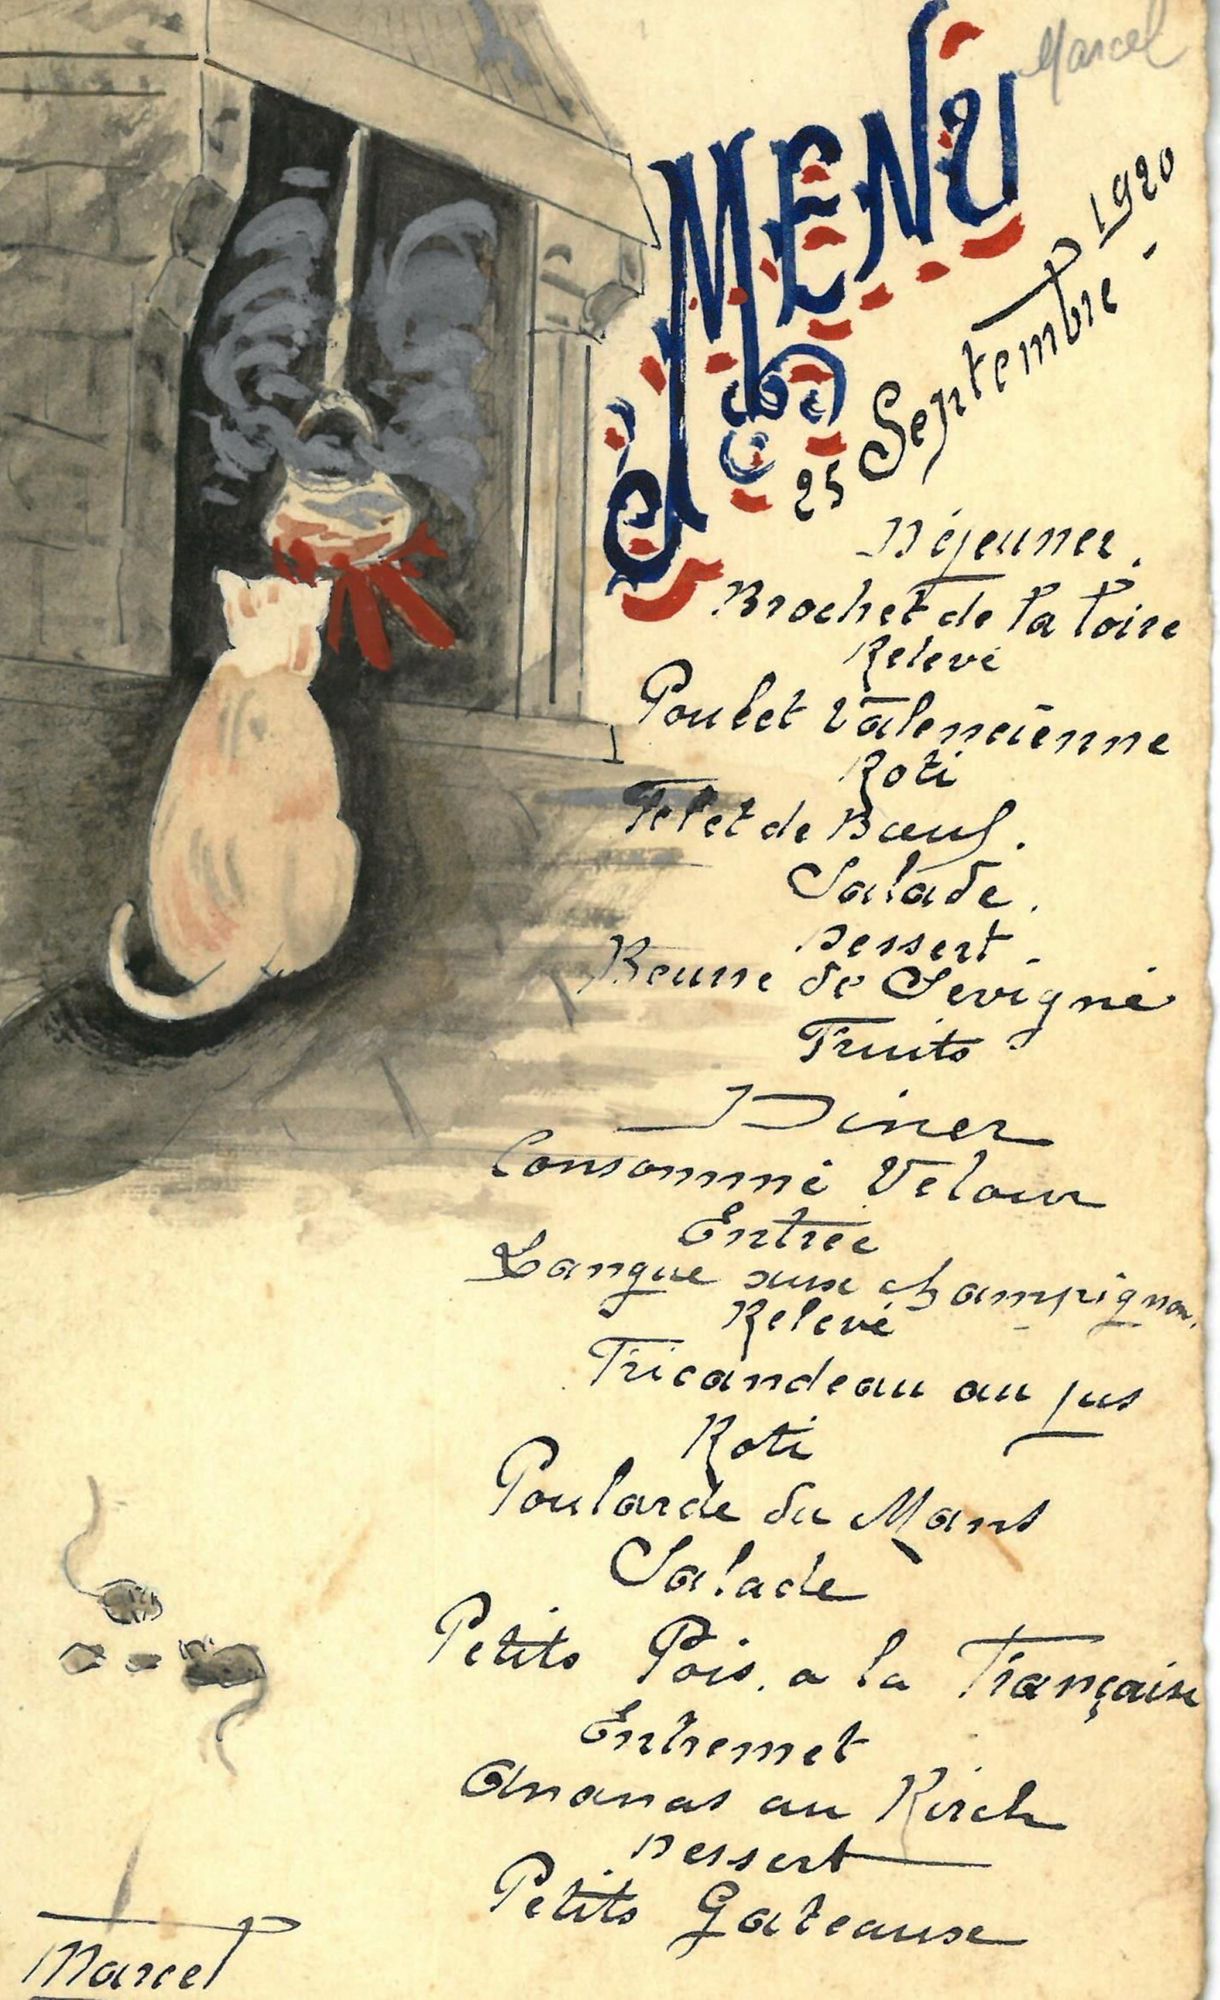 Marcel
MENU
25 Septembre 1920 -
Déjeuner.
Brochet de la Loire
Relevé
Poulet Valenciènne
Roti
Filet de Bœuf.
Salade.
Dessert.
de Sevigné
Fruits
Diner
Consommé Velour
Entrée
Langue aux champignon.
Relevé
Fricandeau au jus
Roti
Poularde du Mans
Salade
Petits Pois. a la Française
Entremet
Ananas au Kirch
Dessert
Petits Gateause
Marcel